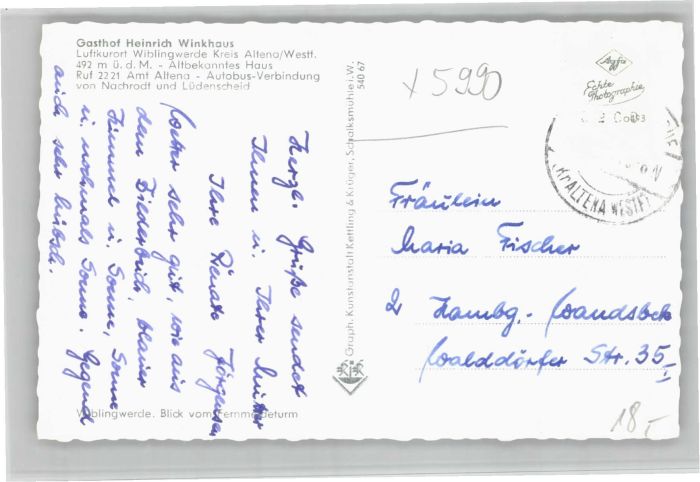 Gasthof Heinrich Winkhaus
Luftkurort Wiblingwerde Kreis Altena/Westf.
492 m ü. d. M. - Altbekanntes Haus
Ruf 2221 Amt Altena - Autobus-Verbindung
von Nachrodt und Lüdenscheid
Herzl. Grüße sendet
Ihnen u. Ihrer Mutter
Ihre Renate Jörgensen
Wetter sehr gut, wie aus
dem Bilderbuch, blauer
Himmel u. Sonne, Sonne
u. nochmals Sonne. Gegend
auch sehr hübsch.
Wiblingwerde. Blick vom Fernmeldeturm
Graph. Kunstanstalt Kettling & Krüger, Schalksmühle i. W.
540 67
x 5990
Agfa
Echte
Photographie
ALTENA WESTF
Fräulein
Maria Fischer
2 Hambg.-Wandsbek
Walddörfer Str. 35 I
18,-